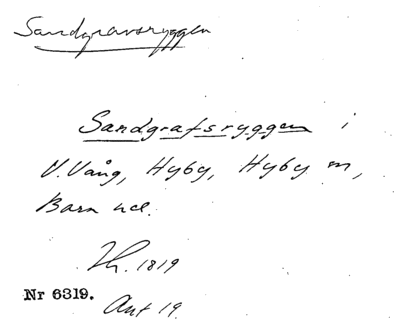 Sandgravsryggen
Sandgrafsryggen i
V. Vång, Hyby, Hyby sn,
Bara hd.
Th. 1819
Nr 6319.
Ant 19